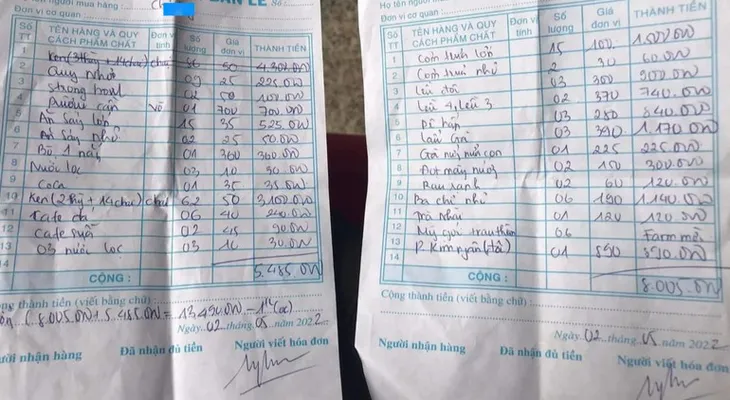 BÁN LẺ
Số :
Họ tên người mua hàng : Ch
Đơn vị cơ quan :
Số TT TÊN HÀNG VÀ QUY CÁCH PHẨM CHẤT Đơn vị tính Số lượng Giá đơn vị THÀNH TIỀN
1 Ken (3 thùng + 14 chai) chai 86 50 4.300.000
2 Quy nhỏ 09 25 225.000
3 Strong bow 02 50 100.000
4 Rượu cần vò 01 700 700.000
5 Ăn sáng lớn 15 35 525.000
6 Ăn sáng nhỏ 02 25 50.000
7 Bò 1 nắng 01 360 360.000
8 Nước lọc 03 10 30.000
9 Coca 01 35 35.000
10 Ken (2 thg + 14 chai) chai 62 50 3.100.000
11 Cafe đá 06 40 240.000
12 Cafe sữa 02 45 90.000
13 03 nước lọc 03 10 30.000
14
CỘNG : 5.485.000
Cộng thành tiền (viết bằng chữ) :
(8.005.000 + 5.485.000 = 13.490.000 - 1tr (cọc)
Ngày 02 tháng 05 năm 2022
Người nhận hàng Đã nhận đủ tiền Người viết hóa đơn
Họ tên người mua hàng
Đơn vị cơ quan :
Số TT TÊN HÀNG VÀ QUY CÁCH PHẨM CHẤT Đơn vị tính Số lượng Giá đơn vị THÀNH TIỀN
1 Cơm trưa lớn 15 100 1.500.000
2 Cơm trưa nhỏ 2 30 60.000
3 Lều đôi 03 300 900.000
4 Lều 4, Lều 3 02 370 740.000
5 Dê hấp 03 280 840.000
6 Lẩu Gà 03 390 1.170.000
7 Gà nướng nửa con 01 225 225.000
8 nướng 02 150 300.000
9 Rau xanh 02 60 120.000
10 Ba chỉ nhỏ 06 190 1.140.000
11 Trà 01 120 120.000
12 Mỳ gói 06 Farm mời
13 P. Kim ngân (tối) 01 890 890.000
14
CỘNG : 8.005.000
Cộng thành tiền (viết bằng chữ) :
Ngày 02 tháng 05 năm 2022
Người nhận hàng Đã nhận đủ tiền Người viết hóa đơn